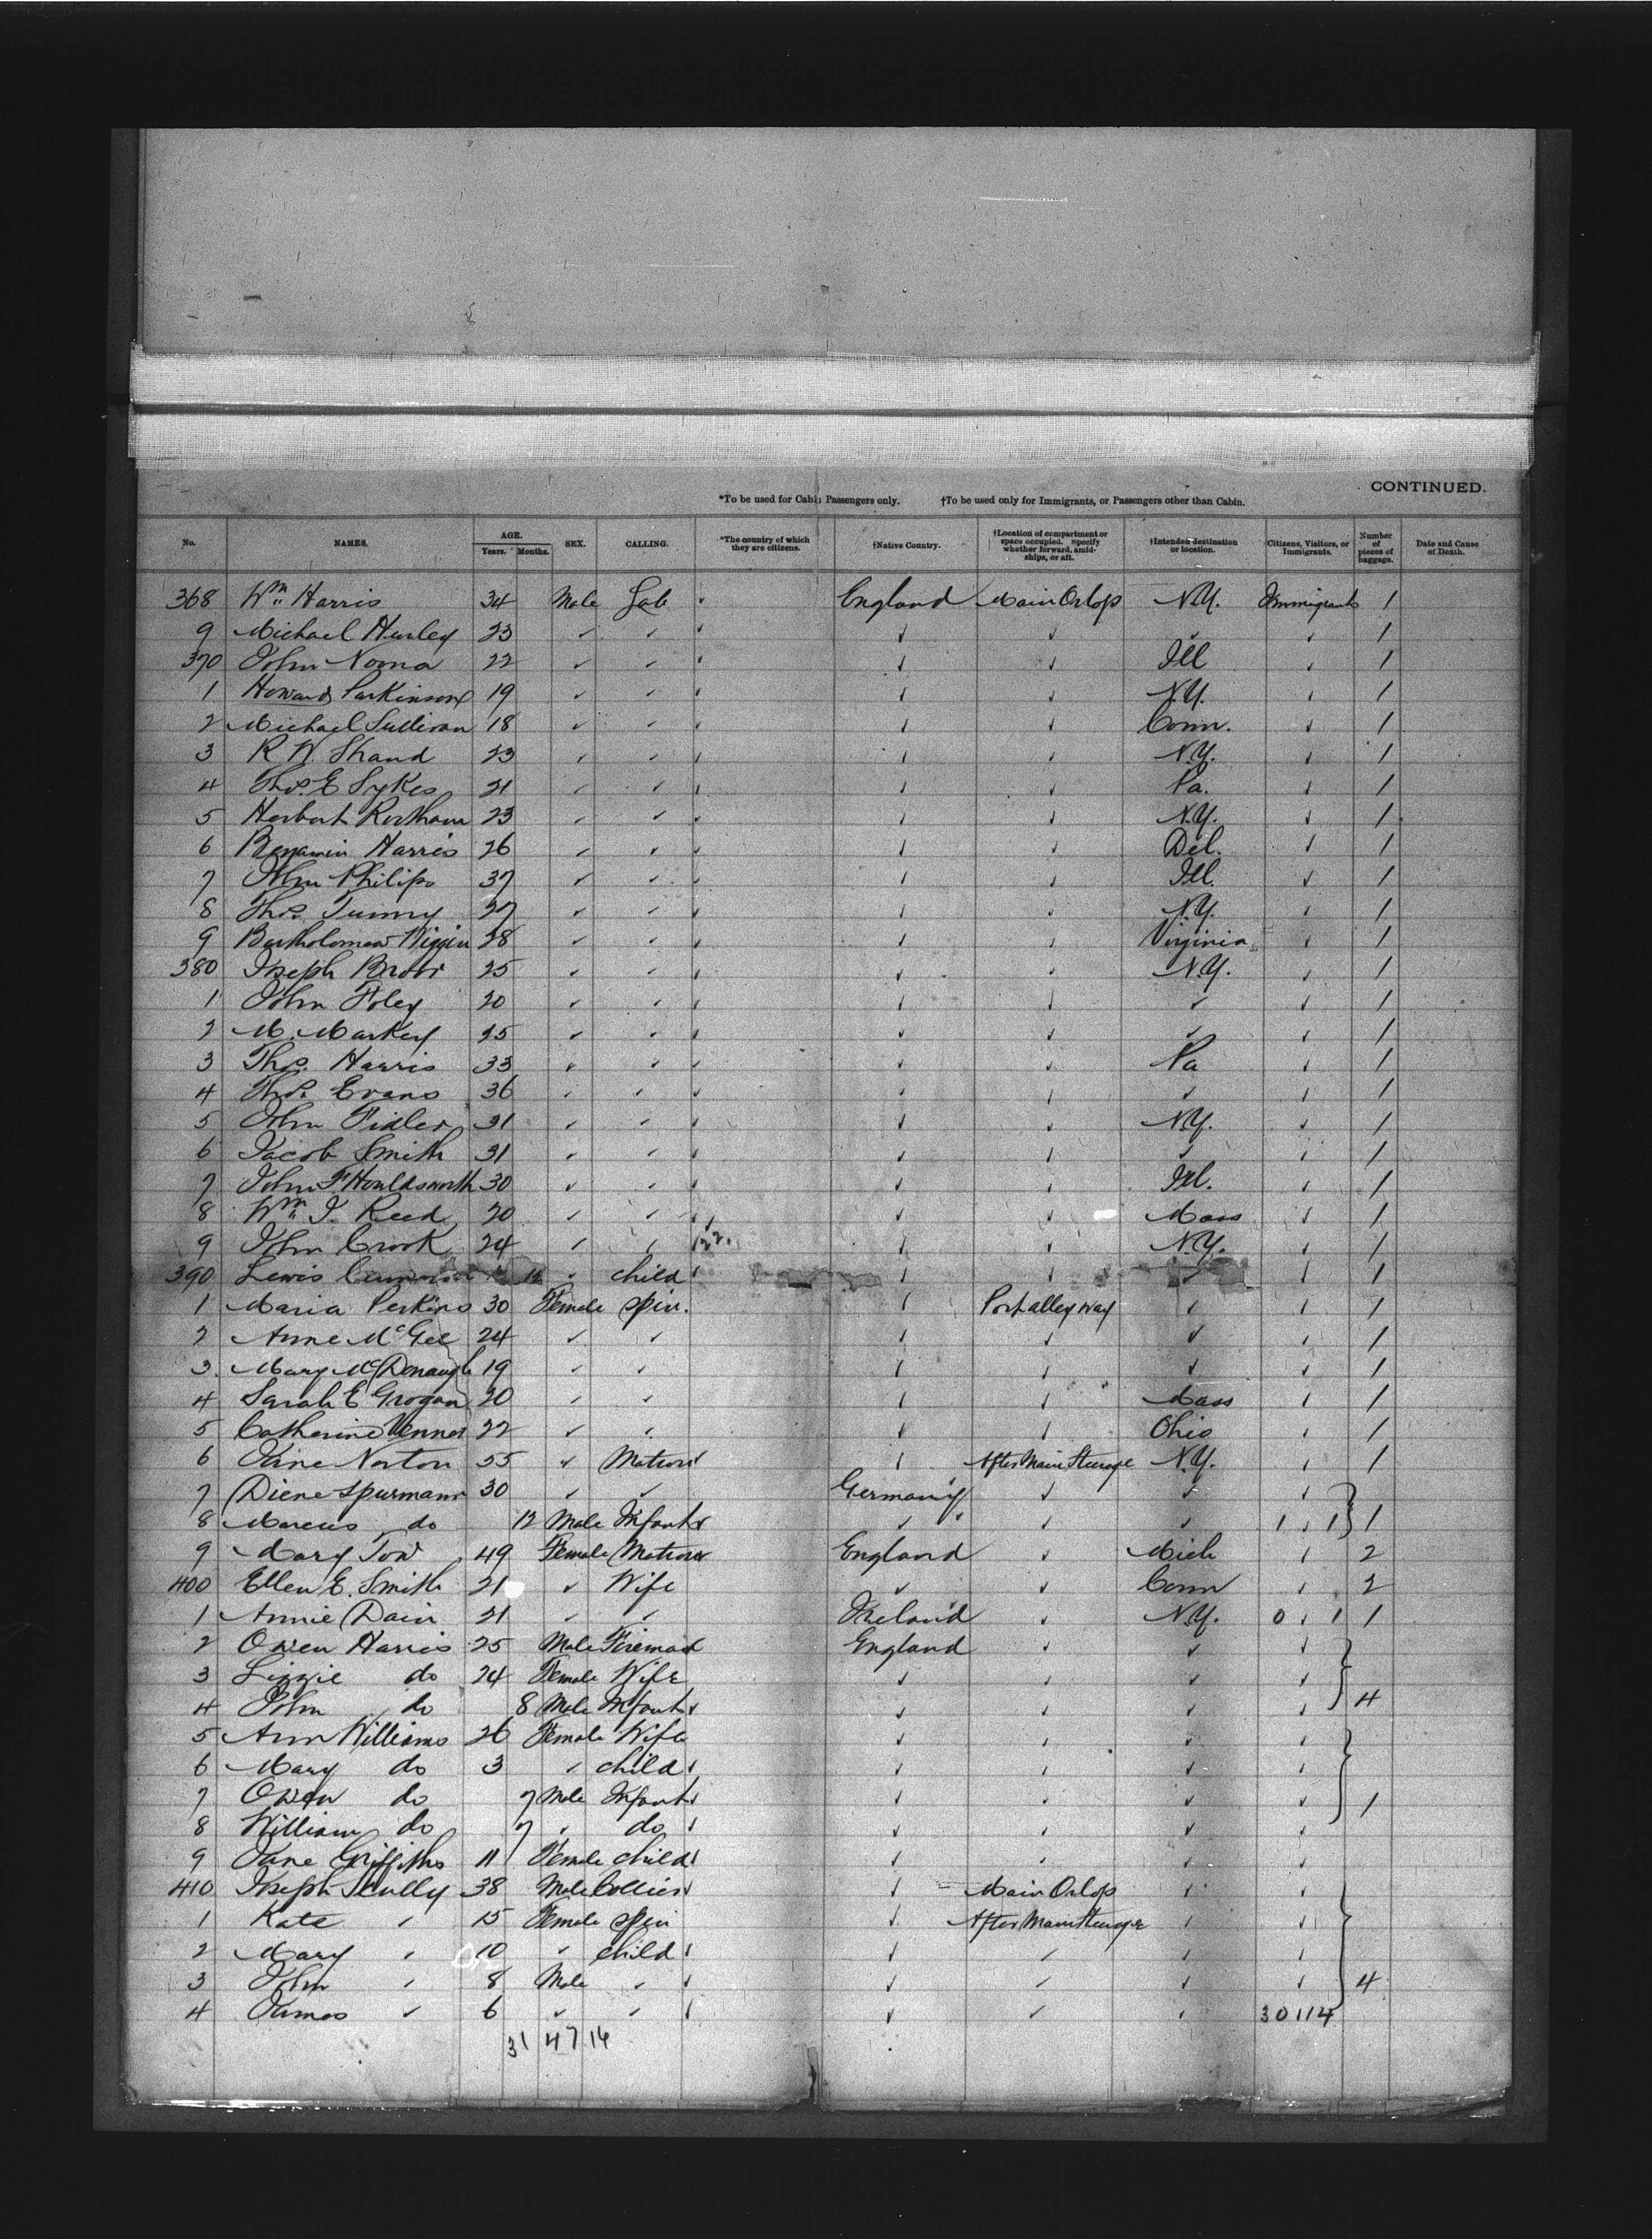 CONTINUED.
*To be used for Cabin Passengers only. †To be used only for Immigrants, or Passengers other than Cabin.
No. NAMES. AGE. Years. Months. SEX. CALLING. *The country of which they are citizens. †Native Country. †Location of compartment or space occupied. Specify whether forward, amidships, or aft. †Intended destination or location. Citizens, Visitors, or Immigrants. Number of pieces of baggage. Date and Cause of Death.
368 Wm Harris 34 Male Lab England Main Orlop N.Y. Immigrants 1
9 Michael Hurley 23 ✓ ✓ ✓ ✓ ✓ ✓ 1
370 John Noona 22 ✓ ✓ ✓ ✓ Ill ✓ 1
1 Howard Parkinson 19 ✓ ✓ ✓ ✓ N.Y. ✓ 1
2 Michael Sullivan 18 ✓ ✓ ✓ ✓ Conn. ✓ 1
3 R W Shand 23 ✓ ✓ ✓ ✓ N.Y. ✓ 1
4 Thos. E Sykes 21 ✓ ✓ ✓ ✓ Pa. ✓ 1
5 Herbert 23 ✓ ✓ ✓ ✓ N.Y. ✓ 1
6 Benjamin Harris 26 ✓ ✓ ✓ ✓ Del. ✓ 1
7 John Philips 37 ✓ ✓ ✓ ✓ Ill. ✓ 1
8 Thos. Tunny 27 ✓ ✓ ✓ ✓ N.Y. ✓ 1
9 Bartholomew Wiggin 28 ✓ ✓ ✓ ✓ Virginia ✓ 1
380 Joseph 25 ✓ ✓ ✓ ✓ N.Y. ✓ 1
1 John Foley 20 ✓ ✓ ✓ ✓ ✓ ✓ 1
2 M. Markey 25 ✓ ✓ ✓ ✓ ✓ ✓ 1
3 Thos. Harris 33 ✓ ✓ ✓ ✓ Pa ✓ 1
4 Thos. Evans 36 ✓ ✓ ✓ ✓ ✓ ✓ 1
5 John Fidler 31 ✓ ✓ ✓ ✓ N.Y. ✓ 1
6 Jacob Smith 31 ✓ ✓ ✓ ✓ ✓ ✓ 1
7 John F. Houldsworth 30 ✓ ✓ ✓ ✓ Ill. ✓ 1
8 Wm J. Reed 20 ✓ ✓ ✓ ✓ Mass ✓ 1
9 John Crook 24 ✓ ✓ ✓ ✓ N.Y. ✓ 1
390 Lewis ✓ child ✓ ✓ ✓ ✓ 1
1 Maria Perkins 30 Female Spin. ✓ Port alley way ✓ ✓ 1
2 Anne McGee 24 ✓ ✓ ✓ ✓ ✓ ✓ 1
3. Mary McDonaugh 19 ✓ ✓ ✓ ✓ ✓ ✓ 1
4 Sarah E Grogan 20 ✓ ✓ ✓ ✓ Mass ✓ 1
5 Catherine Venner 22 ✓ ✓ ✓ ✓ Ohio ✓ 1
6 Jane Norton 55 ✓ Matron ✓ After Main Steerage N.Y. ✓ 1
7 Diene Spurmann 30 ✓ ✓ Germany ✓ ✓ ✓
8 Marcus do 12 Male Infant ✓ ✓ ✓ 1 1 1 1
9 Mary Tow 49 Female Matron England ✓ Mich ✓ 2
400 Ellen E. Smith 21 ✓ Wife ✓ ✓ Conn ✓ 2
1 Annie Dain 21 ✓ ✓ Ireland ✓ N.Y. 0 1 1 1
2 Owen Harris 25 Male Fireman England ✓ ✓ ✓
3 Lizzie do 24 Female Wife ✓ ✓ ✓ ✓
4 John do 8 Male Infant ✓ ✓ ✓ ✓ 4
5 Ann Williams 26 Female Wife ✓ ✓ ✓ ✓
6 Mary do 3 ✓ child ✓ ✓ ✓ ✓
7 Owen do 7 Male Infant ✓ ✓ ✓ ✓ 1
8 William do 7 ✓ do ✓ ✓ ✓ ✓
9 Jane Griffiths 11 Female child ✓ ✓ ✓ ✓
410 Joseph Scully 38 Male Collier ✓ Main Orlop ✓ ✓
1 Kate ✓ 15 Female Spin ✓ After Main Steerage ✓ ✓
2 Mary ✓ 10 ✓ child ✓ ✓ ✓ ✓
3 John ✓ 8 Male ✓ ✓ ✓ ✓ ✓ 4
4 James ✓ 6 ✓ ✓ ✓ ✓ ✓ 30 11 4
31 47 16